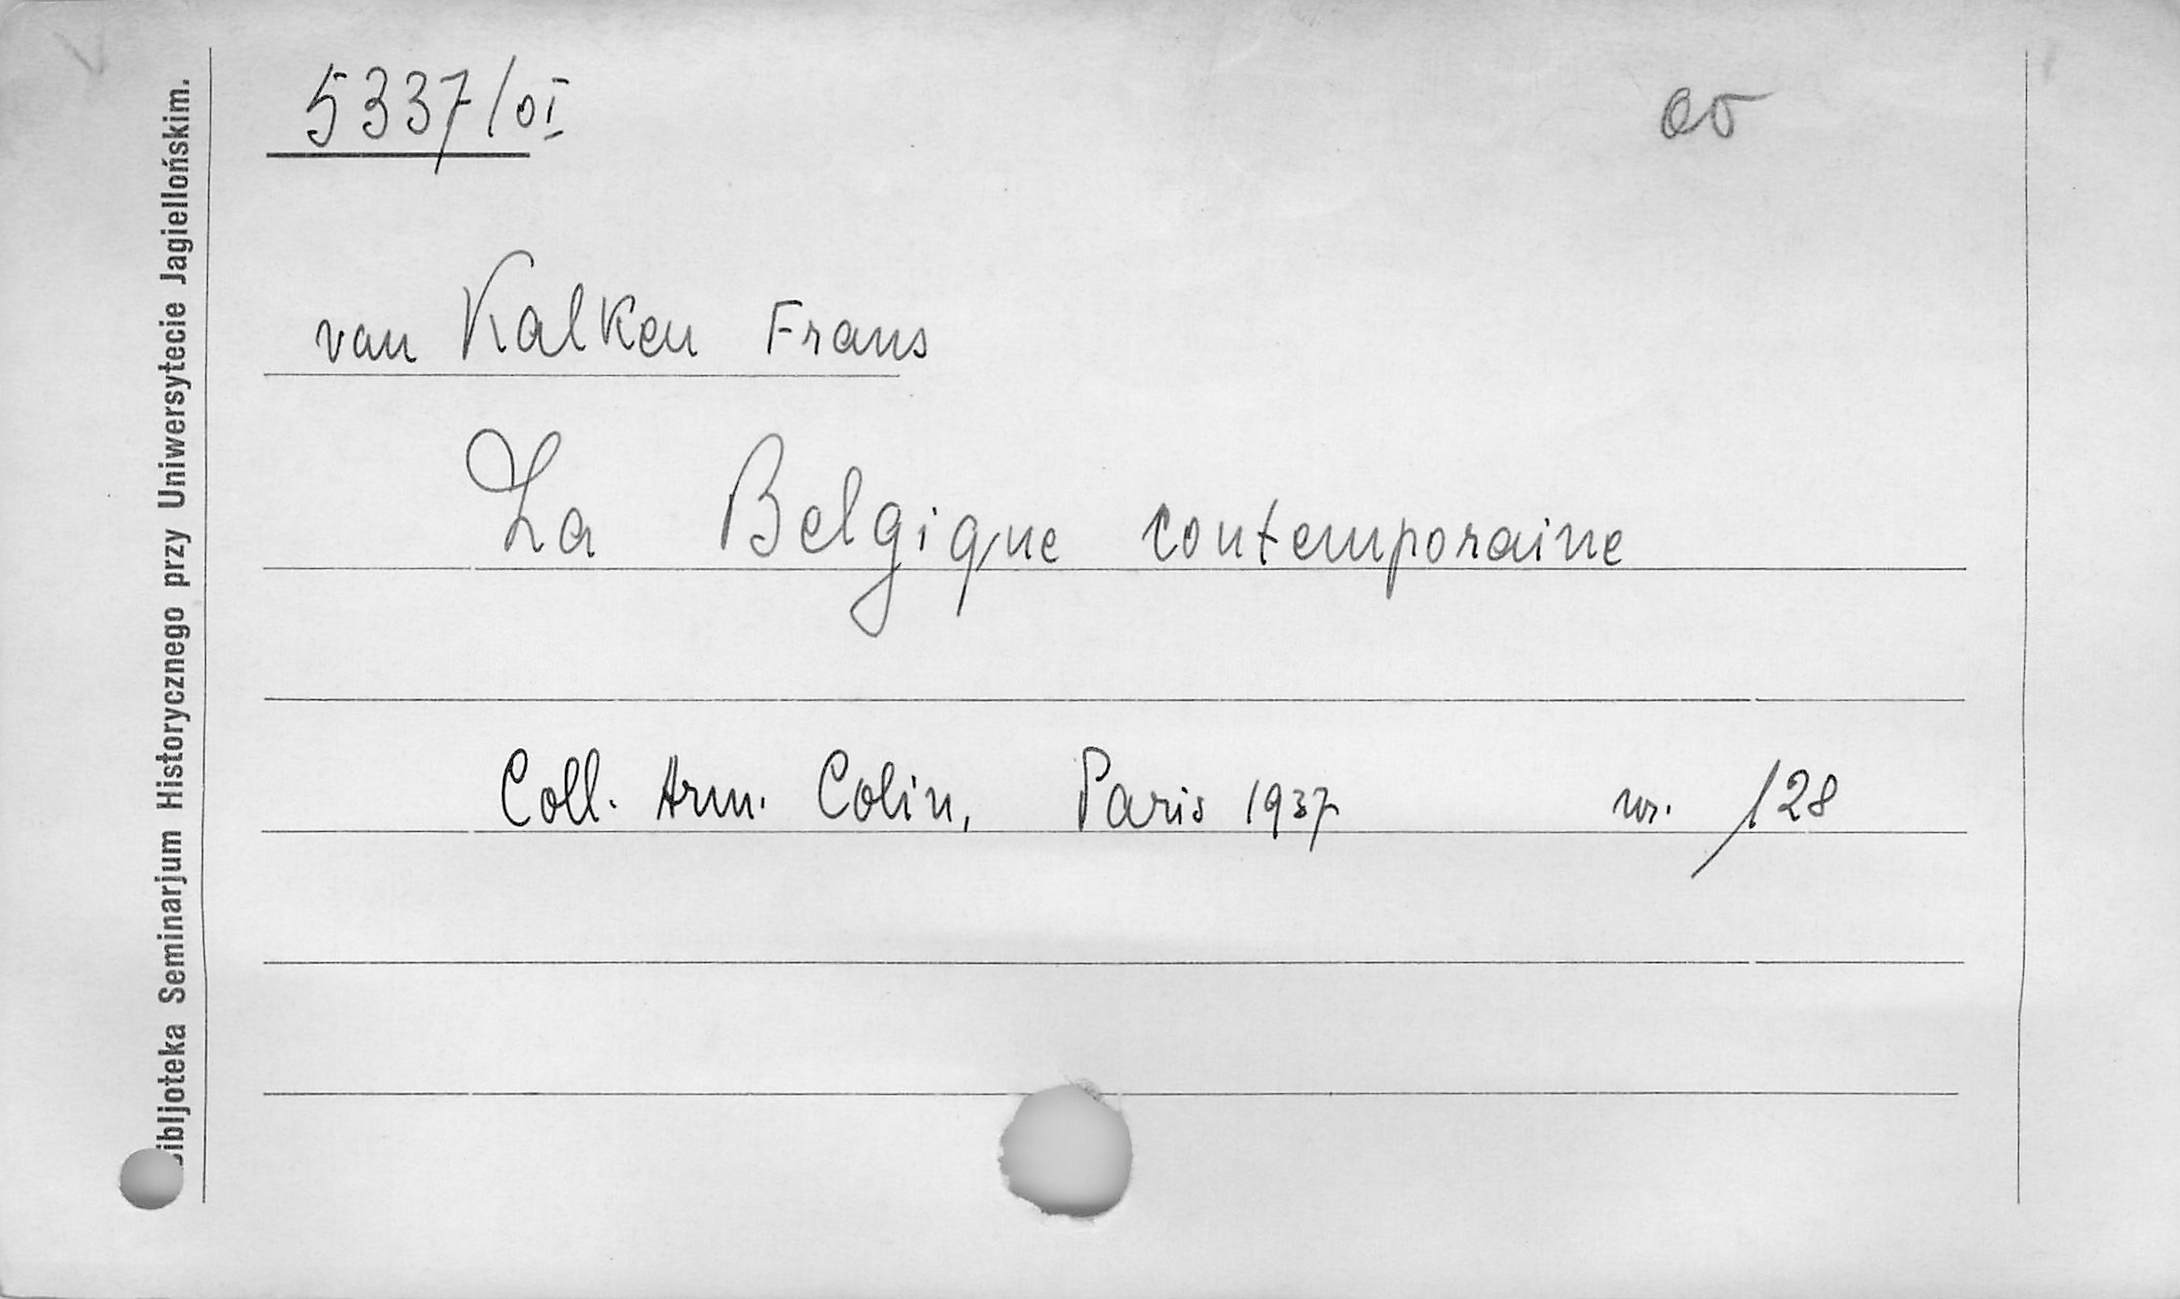 5337/OI
van Kalken Frans
La Belgique contemporaine
Coll. Arm. Colin, Paris 1937 nr. 128
Bibljoteka Seminarjum Historycznego przy Uniwersytecie Jagiellońskim.